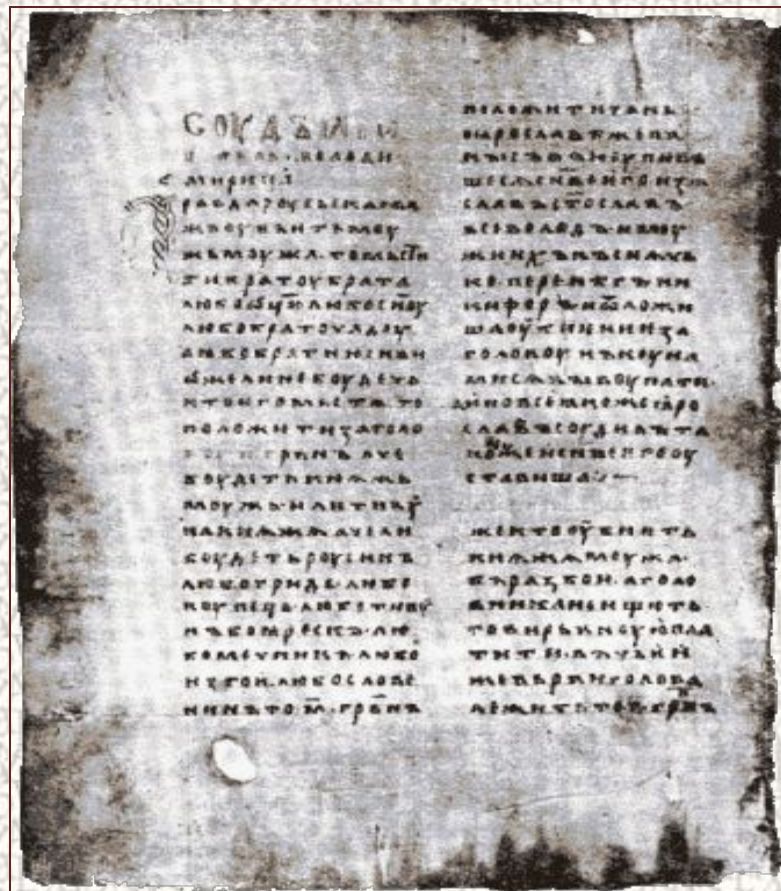 СОУДЪ
мирица
равда роусьскаꙗ а
же оубьѥть моу
жь моужа то мьсти
ти братоу брата
любо ѡц҃ю любо сн҃оу
любо братоучадоу
любо братню сн҃ви
ѡже ли не боудеть
кто ѥго мьстѧ то
положити за голо
гр҃внъ аче
боудеть кнѧжь
моужь или тиоу
на кнѧжа аче ли
боудеть роусинъ
любо гридь любо
коупець любо тивоу
нъ боꙗрескъ лю
бо мечникъ любо
изгои любо слове
нинъ то м҃ гр҃внъ
положити за нь
по ꙗрославѣ же па
кы съвъкоупивъ
шесѧ сн҃ве ѥго изѧ
славъ ст҃ославъ
всѣволодъ и моу
жи ихъ къснѧчь
ко перенѣгъ ни
кифоръ и ѿложи
ша оубиѥниѥ за
головоу нъ коунѧ
ми сѧ выкоупати
а ино все ꙗкоже ꙗро
славъ соудилъ та
коже и сн҃ве ѥго оу
ставиша
же кто оубиѥть
кнѧжа моужа
въ разбои а голо
вника не ищють
то вирьвноую пла
тити въ чьѥи
же вьрви голова
лежить то п҃ гр҃внъ